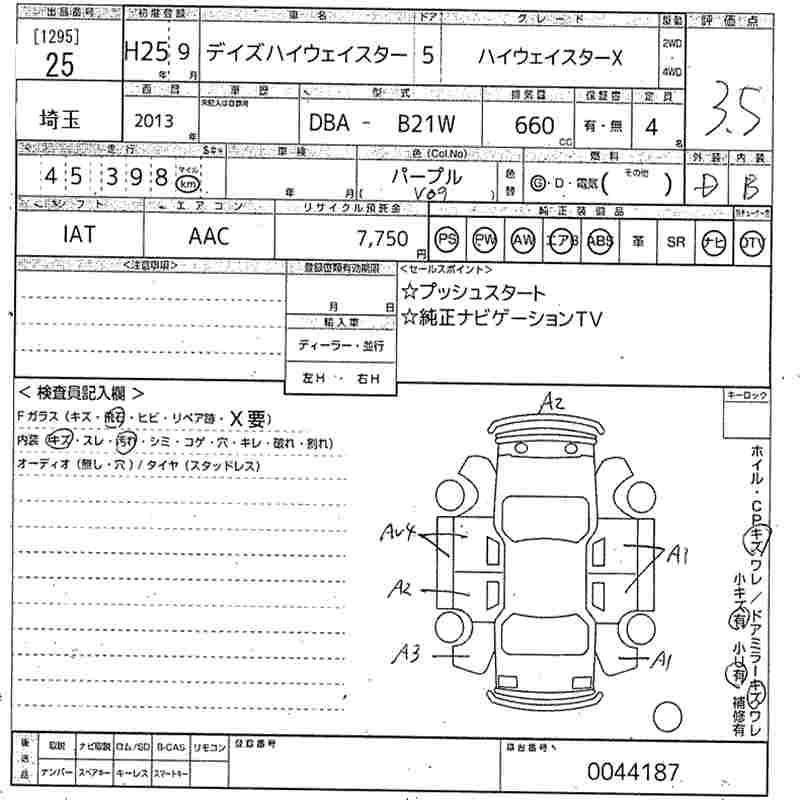 出品番号 初度登録 車名 ドア グレード 駆動 評価点
[1295] 25 H25年 9月 デイズハイウェイスター 5 ハイウェイスターX 2WD・4WD 3.5
埼玉 西暦 車歴 型式 排気量 保証書 定員
未記入は自家用
2013年 DBA - B21W 660cc 有・無 4名
走行 車検 色(Col.No) 燃料 外装 内装
45398 マイル km 年 月 パープル 色替 G・D・電気( その他 ) D B
( V09 )
シフト エアコン リサイクル預託金 純正装備品
IAT AAC 7,750円 PS PW AW エアB ABS 革 SR ナビ DTV
<注意事項> 登録書類有効期限 <セールスポイント>
月 日 ☆プッシュスタート
輸入車 ☆純正ナビゲーションTV
ディーラー・並行
左H ・ 右H
<検査員記入欄> キーロック
Fガラス(キズ・飛石・ヒビ・リペア跡・X要)
内装(キズ・スレ・汚れ・シミ・コゲ・穴・キレ・破れ・割れ)
オーディオ(無し・穴)/タイヤ(スタッドレス)
A2
AU4
A1
A2
A3
A1
ホイル・CPキズワレ/ドアミラーキズワレ
小キズ有 小U有 補修有
後送品 取説 ナビ取説 ロム/SD B-CAS リモコン 登録番号 車台番号
ナンバー スペアキー キーレス スマートキー 0044187